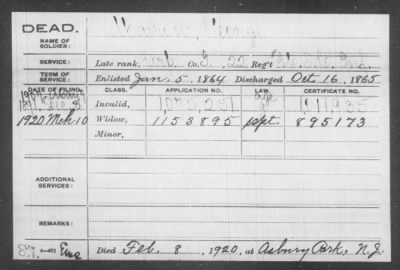 DEAD.
NAME OF SOLDIER:
SERVICE:
Late rank, Co. G, 22 Reg't
TERM OF SERVICE:
Enlisted Jan. 5, 1864 Discharged Oct. 16, 1865
DATE OF FILING. CLASS. APPLICATION NO. LAW. CERTIFICATE NO.
Invalid, 1,075,251
1920 Mch 10 Widow, 1153895 Sept 895173
Minor,
ADDITIONAL SERVICES:
REMARKS:
Died Feb. 8, 1920, at Asbury Park, N.J.